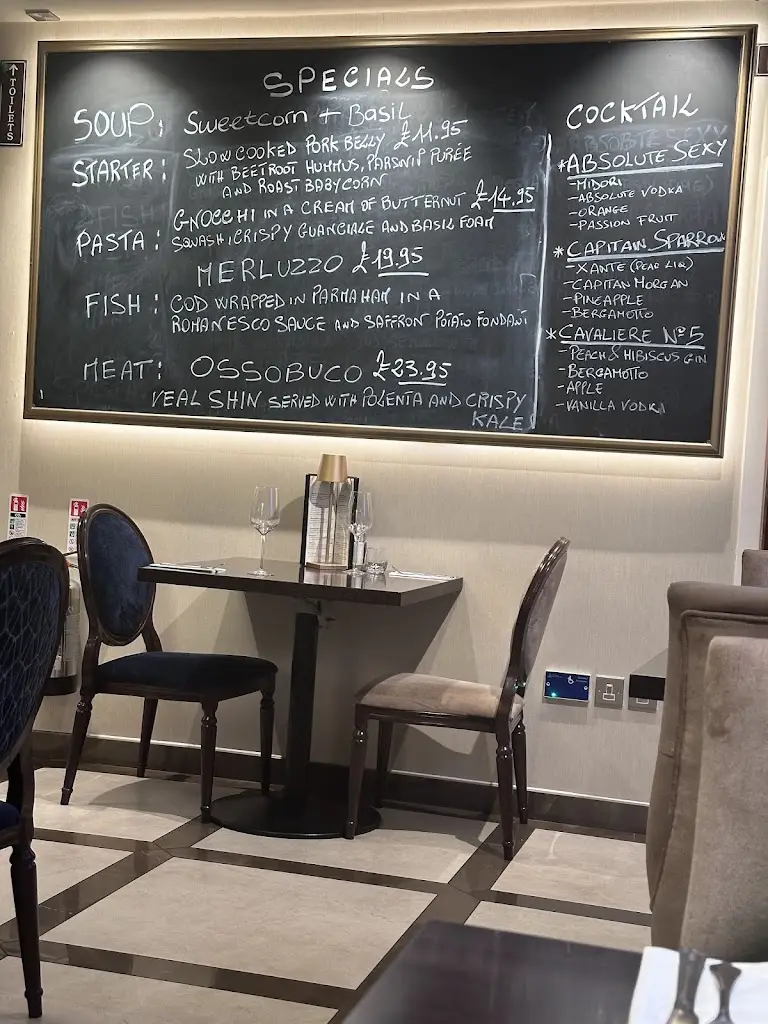 TOILETS
SPECIALS
SOUP: Sweetcorn + Basil
STARTER: SLOW COOKED PORK BELLY £11.95
WITH BEETROOT HUMMUS, PARSNIP PURÉE
AND ROAST BABYCORN
PASTA: GNOCCHI IN A CREAM OF BUTTERNUT £14.95
SQUASH, CRISPY GUANCIALE AND BASIL FOAM
MERLUZZO £19.95
FISH: COD WRAPPED IN PARMAHAM IN A
ROMANESCO SAUCE AND SAFFRON POTATO FONDANT
MEAT: OSSOBUCO £23.95
VEAL SHIN SERVED WITH POLENTA AND CRISPY
KALE
COCKTAIL
*ABSOLUTE SEXY
-MIDORI
-ABSOLUTE VODKA
-ORANGE
-PASSION FRUIT
*CAPITAN SPARROW
-XANTE (PEAR LIQ)
-CAPITAN MORGAN
-PINEAPPLE
-BERGAMOTTO
*CAVALIERE Nº5
-PEACH & HIBISCUS GIN
-BERGAMOTTO
-APPLE
-VANILLA VODKA